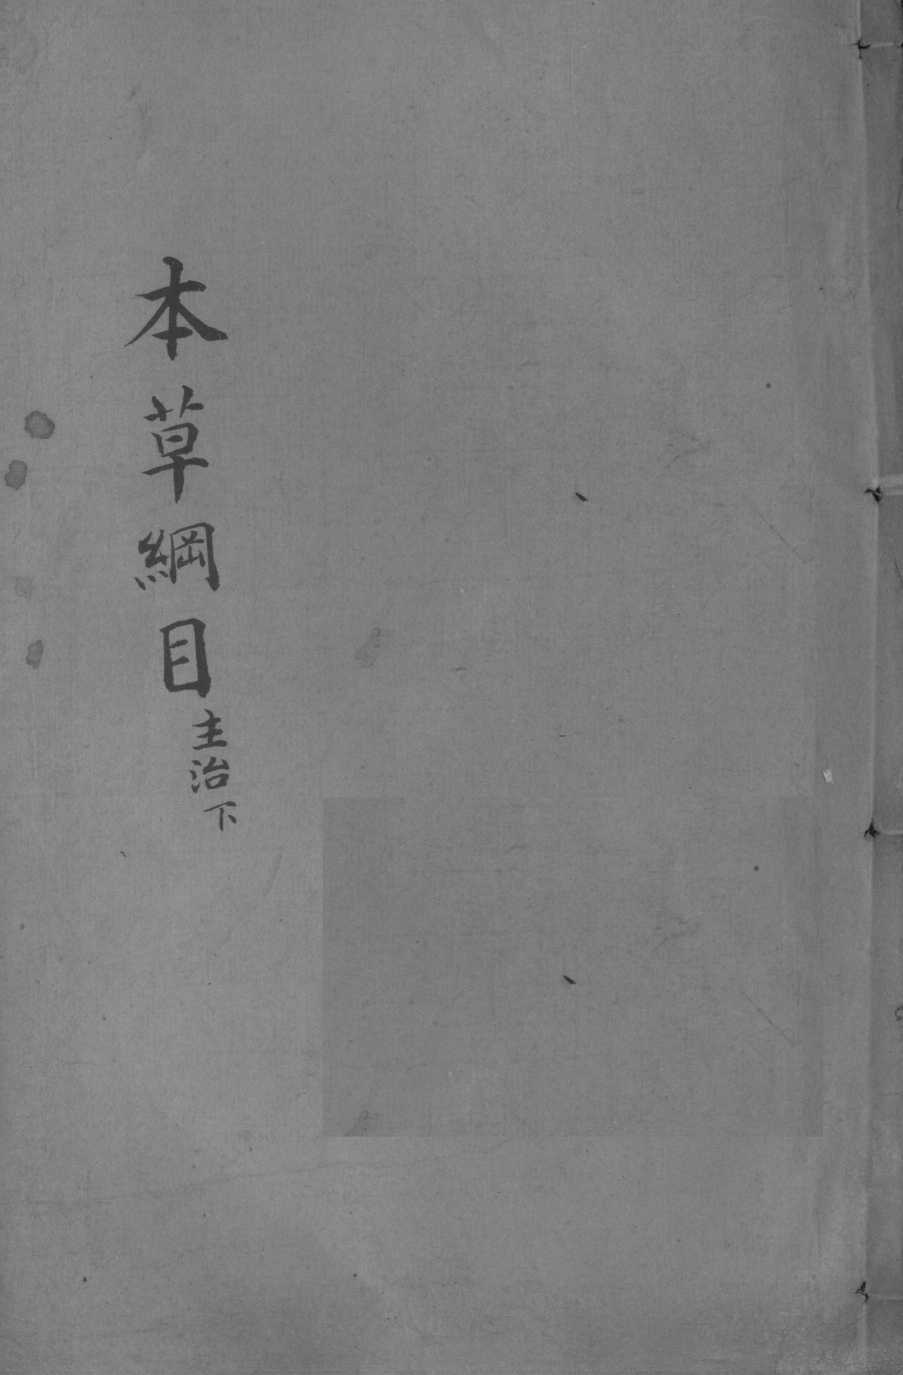 本草綱目
主治下